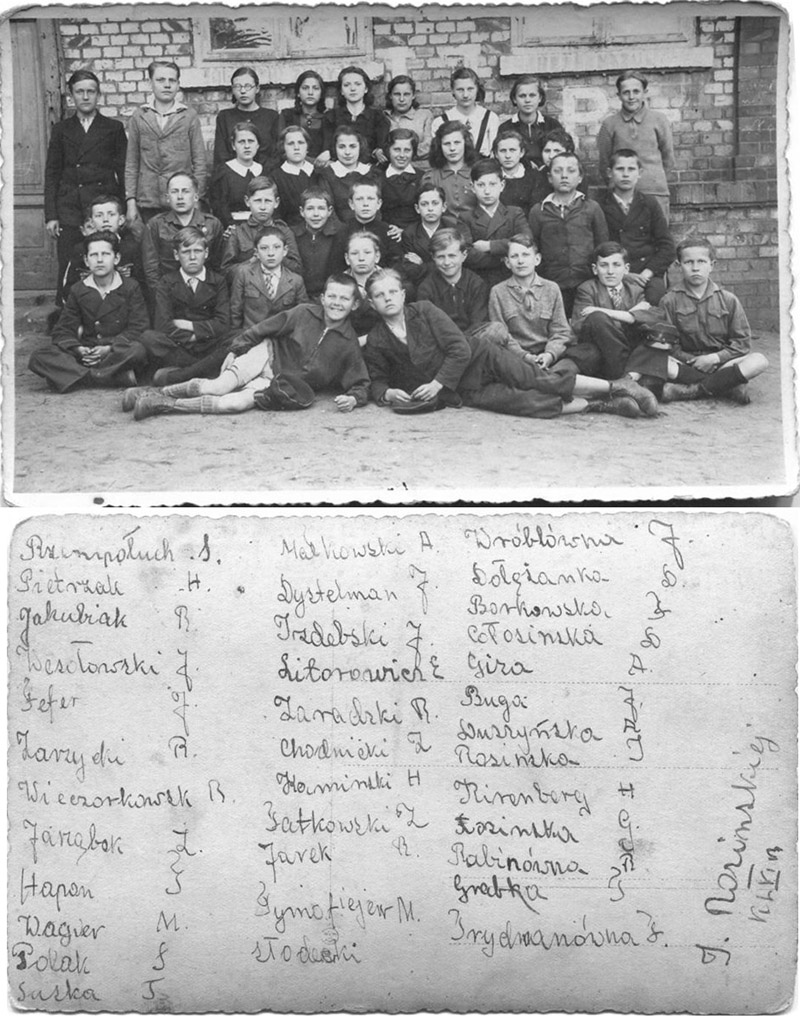 Rzempołuch S.
Pietrzak H.
Jakubiak R.
Wesołowski J.
Fefer J.
Zarzycki R.
Wieczorkowsk R.
Jarząbek Z.
Hapon
Wagner M.
Polak
Suszka T
Małkowski A.
Dystelman J.
Izdebski J.
Litorowicz E
Zaradzki R.
Chodnicki Z
Kamiński H
Fatkowski Z
Jarek R.
Tymofiejew M.
Słodecki
Wróblówna J.
Dołężanka D.
Borkowska
Cołosińska D
Giza A.
Buga
Duszyńska
Rosińska
Nirenberg H
Łosińska
Rabinówna
Grabka
Frydmanówna F.
J. Rosińskiej
Kl. VI B